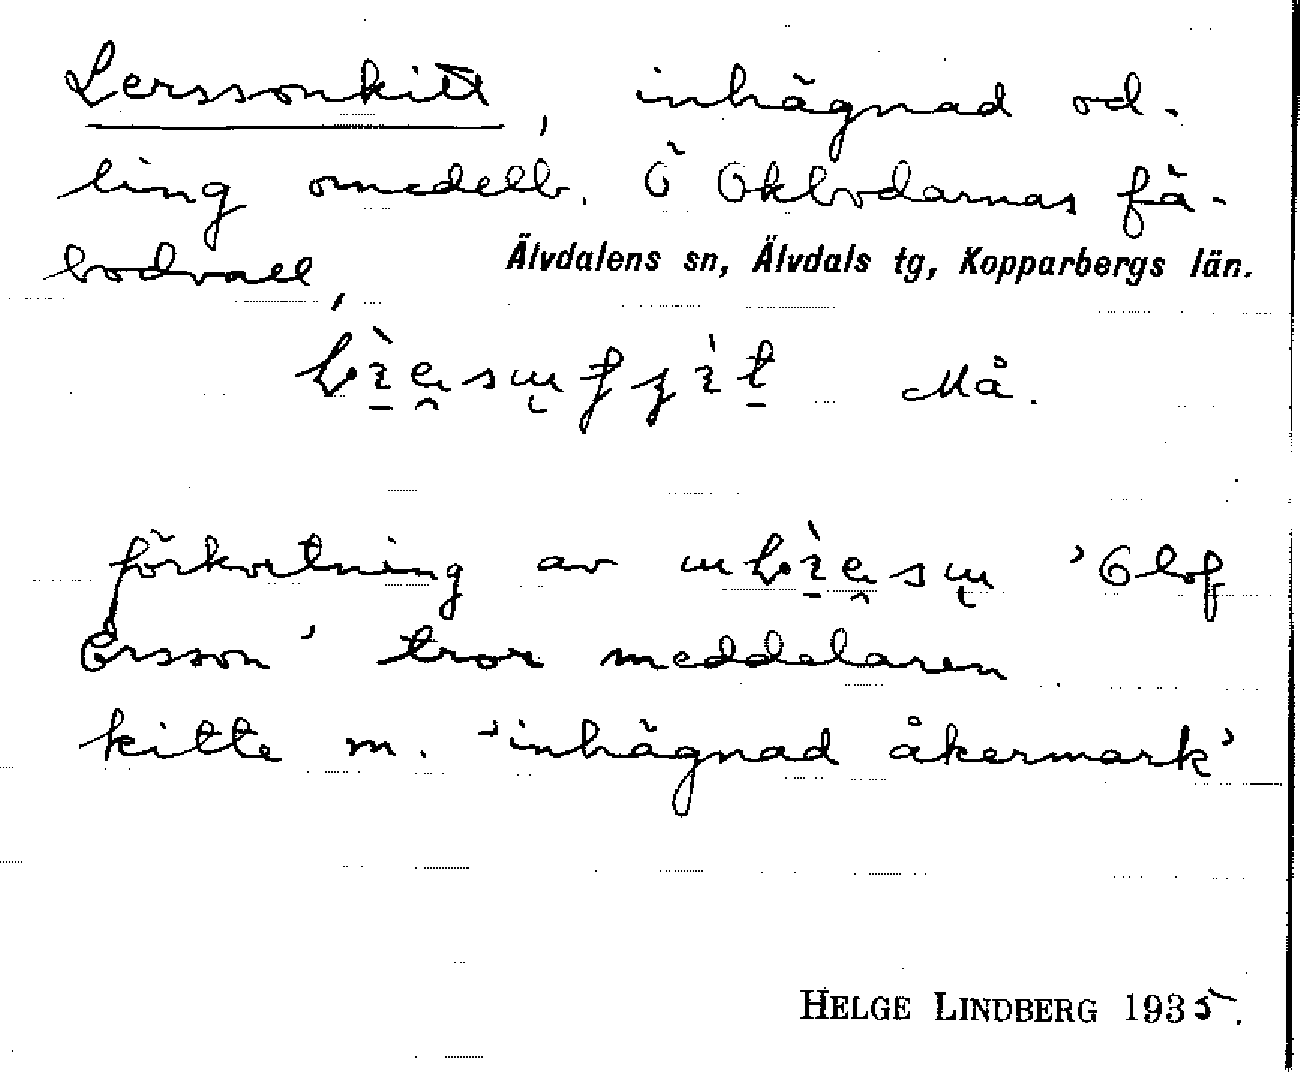 Lerssonkitt, inhägnad od-
ling omedelb. Ö Okbodarnas fä-
bodvall,
Älvdalens sn, Älvdals tg, Kopparbergs län.
Må.
förkortning av 'Olof
Ersson' tror meddelaren
kitte m. 'inhägnad åkermark'
HELGE LINDBERG 1935.